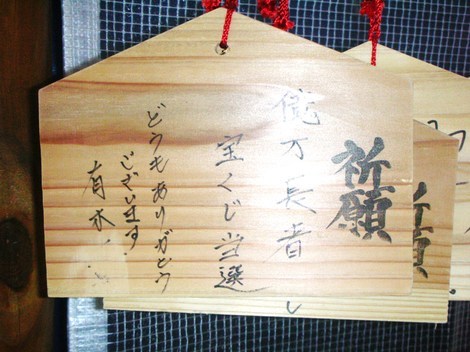 祈願
億万長者
宝くじ当選
どうもありがとう
ございます。
祈願